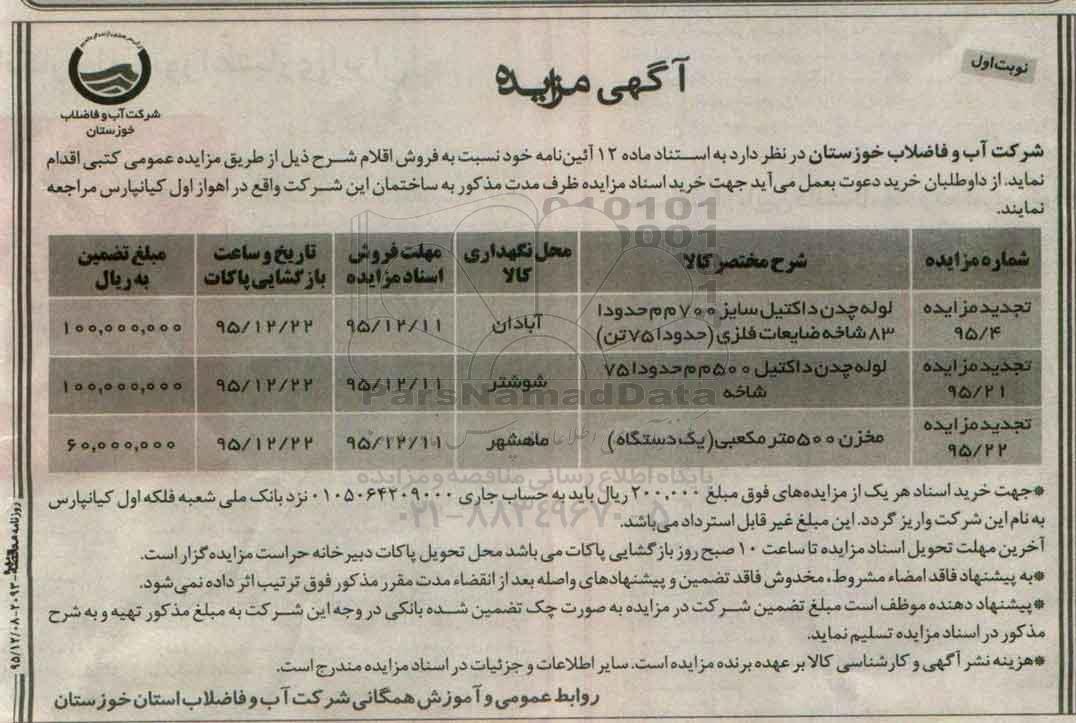 نوبت اول
آگهی مزایده
شرکت آب و فاضلاب
خوزستان
شرکت آب و فاضلاب خوزستان در نظر دارد به استناد ماده ۱۲ آئین‌نامه خود نسبت به فروش اقلام شرح ذیل از طریق مزایده عمومی کتبی اقدام
نماید. از داوطلبان خرید دعوت بعمل می‌آید جهت خرید اسناد مزایده ظرف مدت مذکور به ساختمان این شرکت واقع در اهواز اول کیانپارس مراجعه
نمایند.
شماره مزایده | شرح مختصر کالا | محل نگهداری کالا | مهلت فروش اسناد مزایده | تاریخ و ساعت بازگشایی پاکات | مبلغ تضمین به ریال
تجدید مزایده ۹۵/۴ | لوله چدن داکتیل سایز ۷۰۰ م م حدودا ۸۳ شاخه ضایعات فلزی (حدودا ۷۵ تن) | آبادان | ۹۵/۱۲/۱۱ | ۹۵/۱۲/۲۲ | ۱۰۰,۰۰۰,۰۰۰
تجدید مزایده ۹۵/۲۱ | لوله چدن داکتیل ۵۰۰ م م حدودا ۷۵ شاخه | شوشتر | ۹۵/۱۲/۱۱ | ۹۵/۱۲/۲۲ | ۱۰۰,۰۰۰,۰۰۰
تجدید مزایده ۹۵/۲۲ | مخزن ۵۰۰ متر مکعبی (یک دستگاه) | ماهشهر | ۹۵/۱۲/۱۱ | ۹۵/۱۲/۲۲ | ۶۰,۰۰۰,۰۰۰
ParsNamadData
پایگاه اطلاع رسانی مناقصه و مزایده
۰۲۱-۸۸۳۴۹۶۷۰-۵
*جهت خرید اسناد هر یک از مزایده‌های فوق مبلغ ۲۰۰,۰۰۰ ریال باید به حساب جاری ۰۱۰۵۰۶۴۲۰۹۰۰۰ نزد بانک ملی شعبه فلکه اول کیانپارس
به نام این شرکت واریز گردد. این مبلغ غیر قابل استرداد می‌باشد.
آخرین مهلت تحویل اسناد مزایده تا ساعت ۱۰ صبح روز بازگشایی پاکات می باشد محل تحویل پاکات دبیرخانه حراست مزایده‌گزار است.
*به پیشنهاد فاقد امضاء مشروط، مخدوش فاقد تضمین و پیشنهادهای واصله بعد از انقضاء مدت مقرر مذکور فوق ترتیب اثر داده نمی‌شود.
*پیشنهاد دهنده موظف است مبلغ تضمین شرکت در مزایده به صورت چک تضمین شده بانکی در وجه این شرکت به مبلغ مذکور تهیه و به شرح
مذکور در اسناد مزایده تسلیم نماید.
*هزینه نشر آگهی و کارشناسی کالا بر عهده برنده مزایده است. سایر اطلاعات و جزئیات در اسناد مزایده مندرج است.
روابط عمومی و آموزش همگانی شرکت آب و فاضلاب استان خوزستان